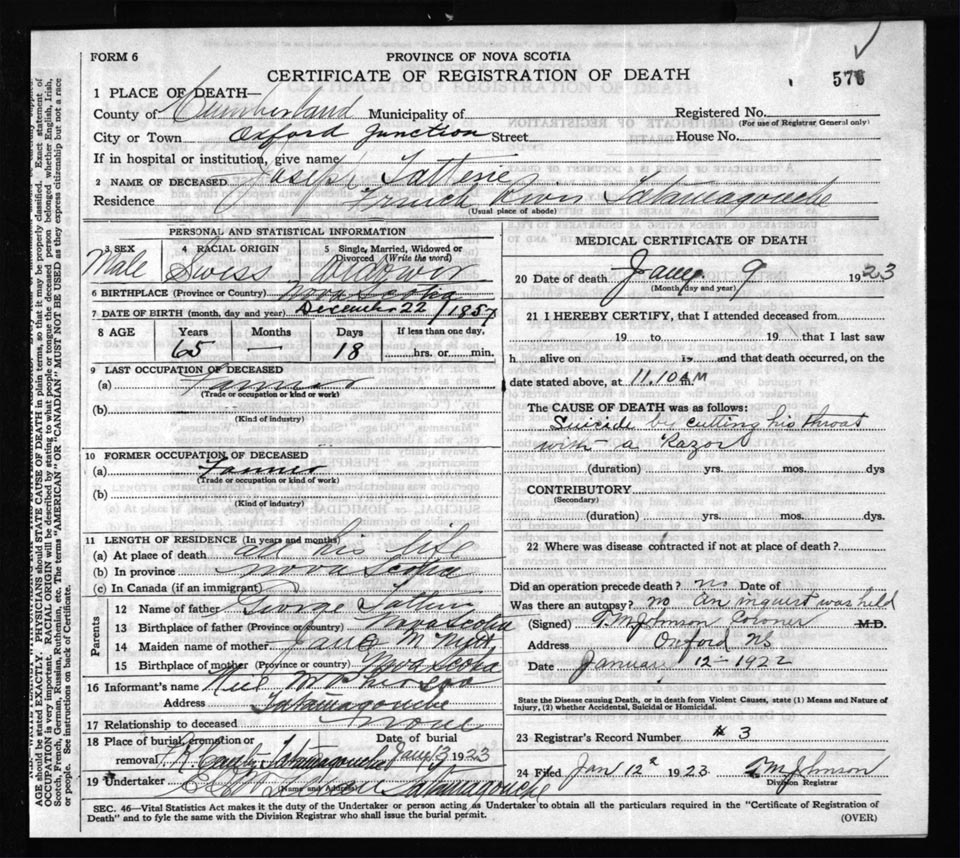 FORM 6
PROVINCE OF NOVA SCOTIA
CERTIFICATE OF REGISTRATION OF DEATH
576
1 PLACE OF DEATH—
County of Cumberland Municipality of
Registered No.
(For use of Registrar General only)
City or Town Oxford Junction Street
House No.
If in hospital or institution, give name
2 NAME OF DECEASED Joseph Tatterie
Residence French River Tatamagouche
(Usual place of abode)
PERSONAL AND STATISTICAL INFORMATION
3 SEX
Male
4 RACIAL ORIGIN
Swiss
5 Single, Married, Widowed or Divorced (Write the word)
Widower
6 BIRTHPLACE (Province or Country) Nova Scotia
7 DATE OF BIRTH (month, day and year) December 22/1857
8 AGE
Years
65
Months
—
Days
18
If less than one day,
hrs. or min.
9 LAST OCCUPATION OF DECEASED
(a) Farmer
(Trade or occupation or kind of work)
(b)
(Kind of industry)
10 FORMER OCCUPATION OF DECEASED
(a) Farmer
(Trade or occupation or kind of work)
(b)
(Kind of industry)
11 LENGTH OF RESIDENCE (In years and months)
(a) At place of death all his life
(b) In province Nova Scotia
(c) In Canada (if an immigrant)
Parents
12 Name of father George
13 Birthplace of father (Province or country) Nova Scotia
14 Maiden name of mother Jane
15 Birthplace of mother (Province or country) Nova Scotia
16 Informant's name Neil
Address Tatamagouche
17 Relationship to deceased none
18 Place of burial, cremation or removal Tatamagouche
Date of burial
Jany 13 1923
19 Undertaker Tatamagouche
(Name and Address)
MEDICAL CERTIFICATE OF DEATH
20 Date of death Jany 9 1923
(Month, day and year)
21 I HEREBY CERTIFY, that I attended deceased from
19 to 19 that I last saw
h alive on 19 and that death occurred, on the
date stated above, at 11.10 AM
The CAUSE OF DEATH was as follows:
Suicide by cutting his throat
with a Razor
(duration) yrs. mos. dys
CONTRIBUTORY
(Secondary)
(duration) yrs. mos. dys
22 Where was disease contracted if not at place of death?
Did an operation precede death? no Date of
Was there an autopsy? no An inquest was held
(Signed) T. M. Johnson Coroner M.D.
Address Oxford NS
Date January 12-1922
State the Disease causing Death, or in death from Violent Causes, state (1) Means and Nature of
Injury, (2) whether Accidental, Suicidal or Homicidal.
23 Registrar's Record Number # 3
24 Filed Jan 12th 1923 T. M. Johnson
Division Registrar
SEC. 46—Vital Statistics Act makes it the duty of the Undertaker or person acting as Undertaker to obtain all the particulars required in the "Certificate of Registration of
Death" and to fyle the same with the Division Registrar who shall issue the burial permit.
(OVER)
AGE should be stated EXACTLY. PHYSICIANS should STATE CAUSE OF DEATH in plain terms, so that it may be properly classified. Exact statement of
OCCUPATION is very important. RACIAL ORIGIN will be described by stating to what people or tongue the deceased person belonged whether English, Irish,
Scotch, French, German, Russian, Ruthenian, etc. The terms "AMERICAN" OR "CANADIAN" MUST NOT BE USED as they express citizenship but not a race
or people. See instructions on back of Certificate.